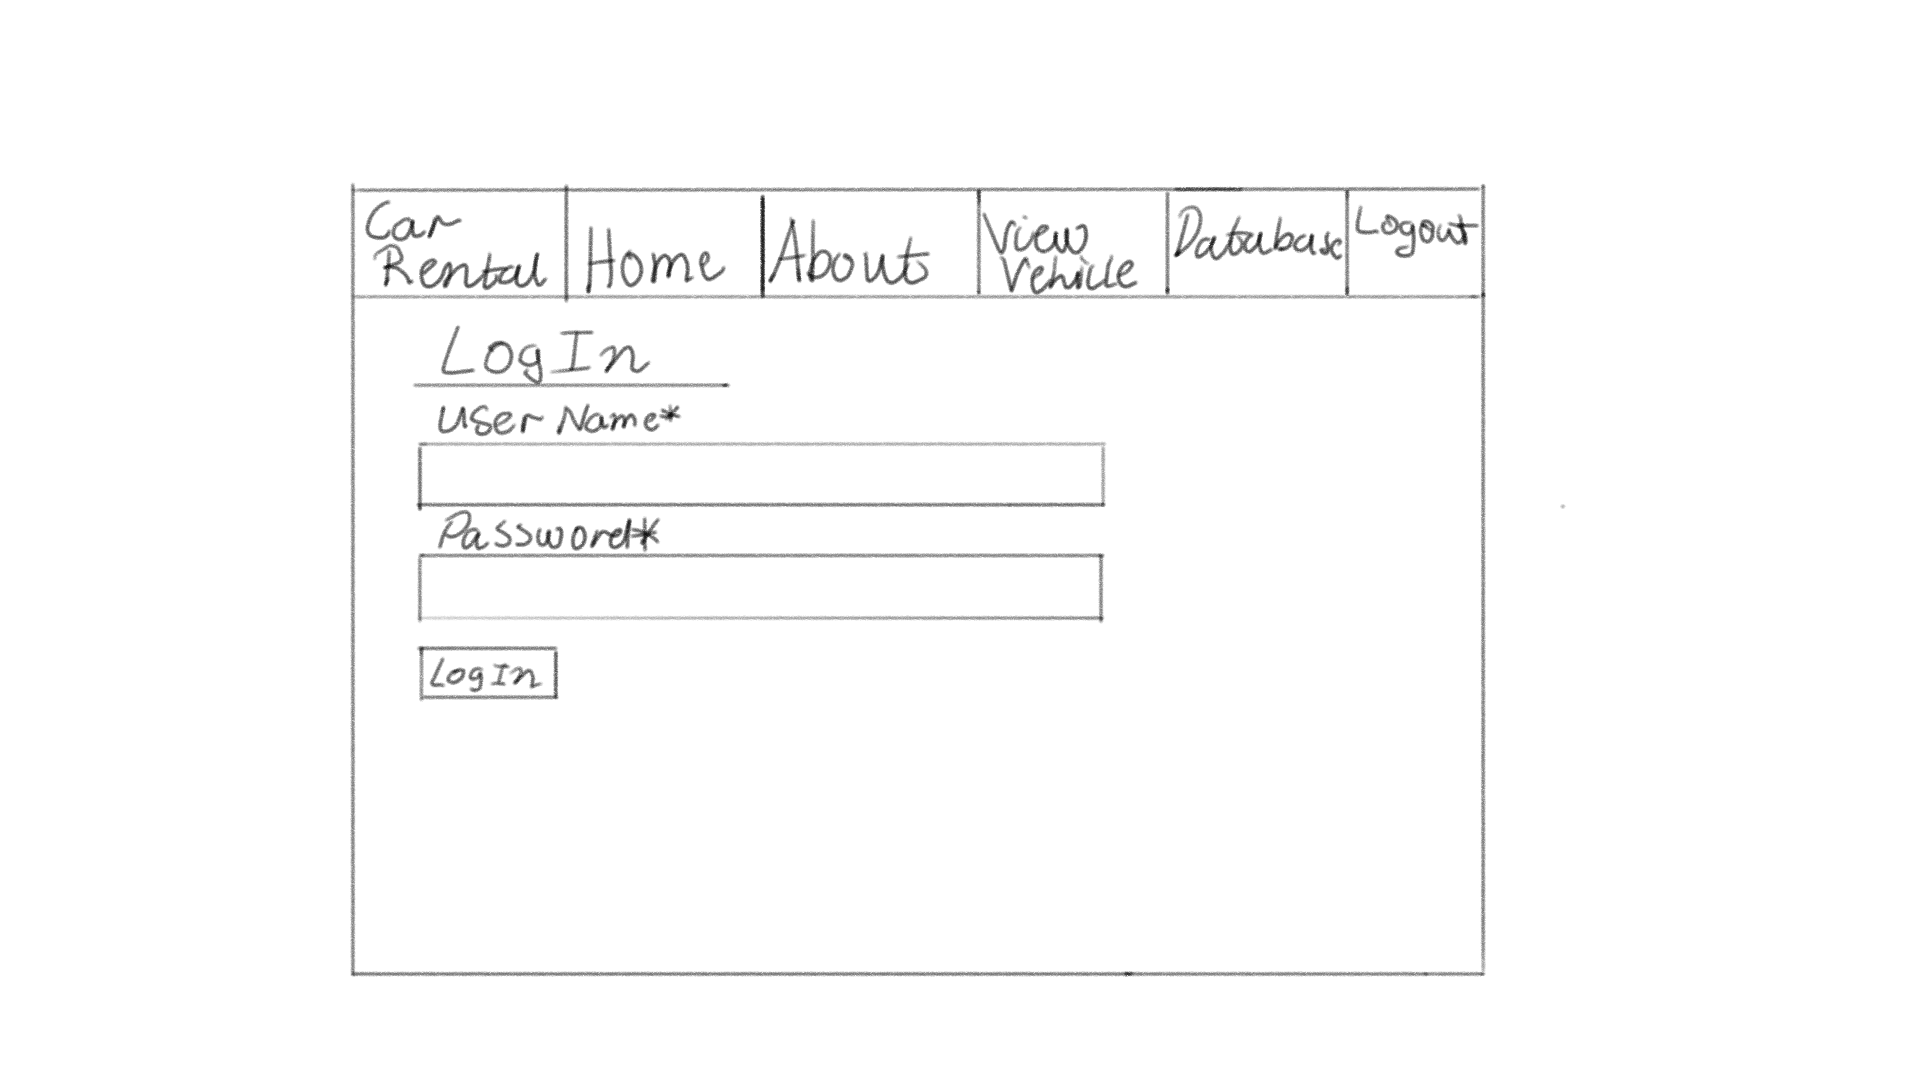 Car
Rental
Home
About
View
Vehicle
Database
Logout
LogIn
User Name*
Password*
LogIn